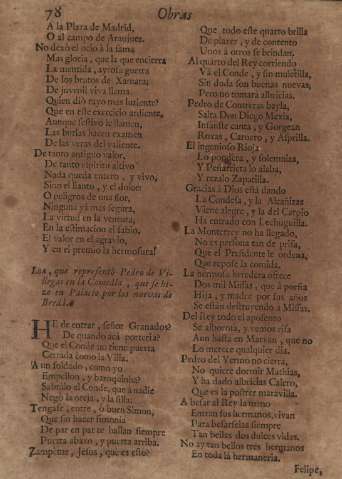 78 Obras
A la Plaza de Madrid,
O al campo de Araujuez.
No dexò el ocio à la fama
Mas gloria, que la que encierra
La mentida, ayrosa guerra
De los brutos de Xarama;
De juvenil viva llama
Quien diò rayo mas luziente?
Que en este exercicio ardiente,
Aunque festivo le llamen,
Las burlas hazen examen
De las veras del valiente.
De tanto antiguo valor,
De tanto espiritu altivo
Nada queda muerto, y vivo,
Sino el llanto, y el dolor:
O peligros de una flor,
Ninguna yà mas segura,
La virtud en la ventura,
En la estimacion el sabio,
El valor en el agravio,
Y en el premio la hermosura!
Loa, que representò Pedro de Vi-
llegas en la Comedia, que se hi-
zo en Palacio por las nuevas de
Breda.
HE de entrar, señor Granados?
De quando acà porteria?
Que el Conde no tiene puerta
Cerrada como la Villa.
A un soldado, como yo
Empellon, y barauhinda?
Sabiendo el Conde, que à nadie
Negò la oreja, y la silla.
Tengase, entre, ò buen Simon,
Que sin hazer simonia
De par en par te hallan siempre
Puerta abaxo, y puerta arriba.
Zampeme, Jesus, que es esto?
Que todo este quarto brilla
De plazer, y de contento
Unos à otros se brindan.
Al quarto del Rey corriendo
Và el Conde, y sin muletilla,
Sin duda son buenas nuevas,
Pero no tomara albricias.
Pedro de Contreras bayla,
Salta Don Diego Mexia,
Infante canta, y Gorgean
Rozas, Carnero, y Asprilla.
El ingenioso Rioja
Lo pondera, y solemniza,
Y Peñarrieta lo alaba,
Y rezalo Zapatilla.
Gracias à Dios està dando
La Condesa, y la Alcañizas
Vierte alegre, y la del Carpio
Ha entrado con Lechuguilla.
La Monterrey no ha llegado,
No es persona tan de prisa,
Que el Presidente le ordena,
Que repose la comida.
La hermosa heredera ofrece
Dos mil Missas, que à porfia
Hija, y madre por sus años
Se estàn destruyendo à Missas.
Del Rey todo el aposento
Se alborota, y vemos risa
Aun hasta en Marban, que no
Lo merece qualquier dia.
Pedro del Yermo no cierra,
No quiere dormir Mathias,
Y ha dado albricias Calero,
Que es la postrer maravilla.
A besar al Rey la mano
Entran sus hermanos, vivan
Para besarselas siempre
Tan bellas dos dulces vidas.
No ay tan bellos tres hermanos
En toda la hermaneria.
Felipe,